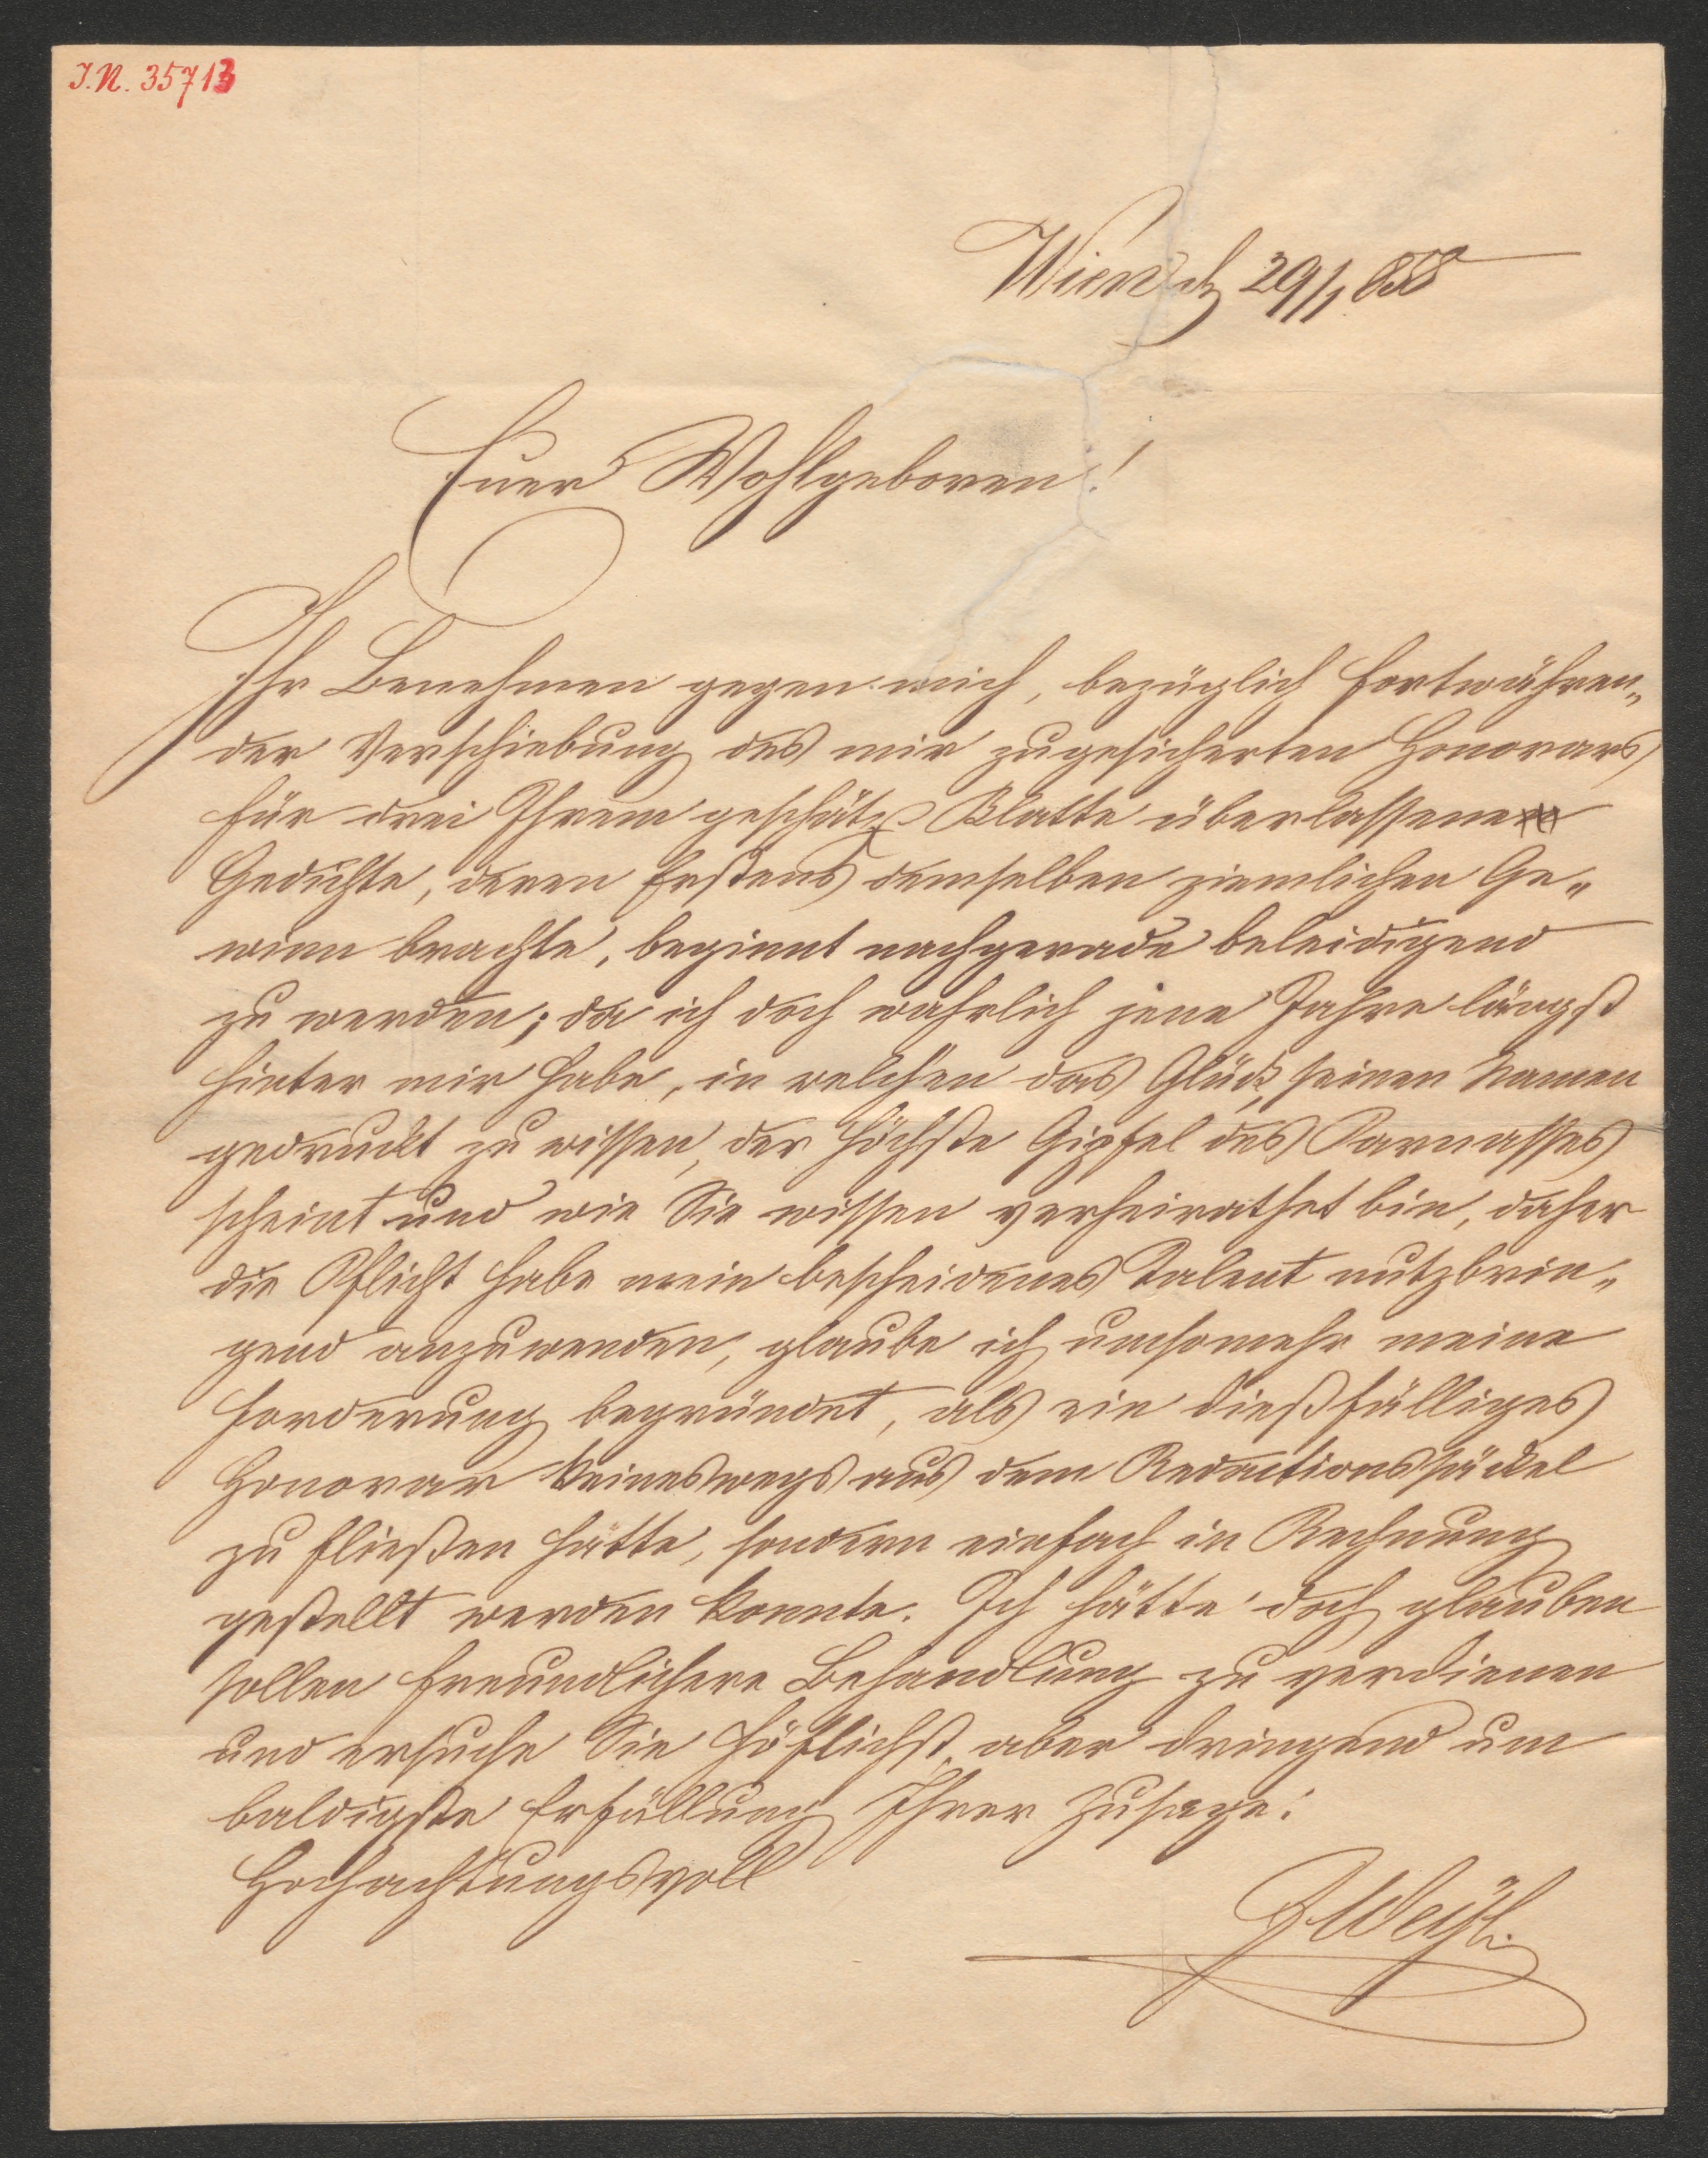 I.N. 35713
Wien d 29/1 858
Euer Wohlgeboren!
Ihr Benehmen gegen mich, bezüglich fortwähren„
der Verschiebung des mir zugesicherten Honorars
für drei Ihrem geschätz Blatte überlassene
Gedichte, deren Erstens demselben ziemlichen Ge„
winn brachte, beginnt nachgerade beleidigend
zu werden; da ich doch wahrlich jene Jahre längst
hinter mir habe, in welchen das Glück, seinen Namen
gedruckt zu wissen, der höchste Gipfel des Parnasses
scheint und wie Sie wissen verheirathet bin, daher
die Pflicht habe mein bescheidenes Talent nutzbrin„
gend anzuwenden, glaube ich umsomehr meine
Forderung begründet, als ein dießfälliges
Honorar keineswegs aus dem Redactionssäckel
zu fließen hätte, sondern einfach in Rechnung
gestellt werden konnte. Ich hätte doch glauben
sollen freundlichere Behandlung zu verdienen
und ersuche Sie höflichst, aber dringend um
baldigste Erfüllung Ihrer Zusage.
Hochachtungsvoll
Weyl